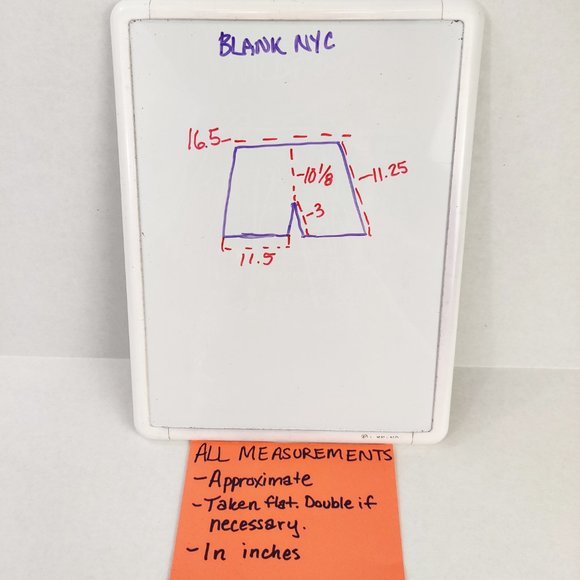 BLANK NYC
16.5
10 1/8
11.25
3
11.5
ALL MEASUREMENTS
-Approximate
-Taken flat. Double if
necessary.
-In inches